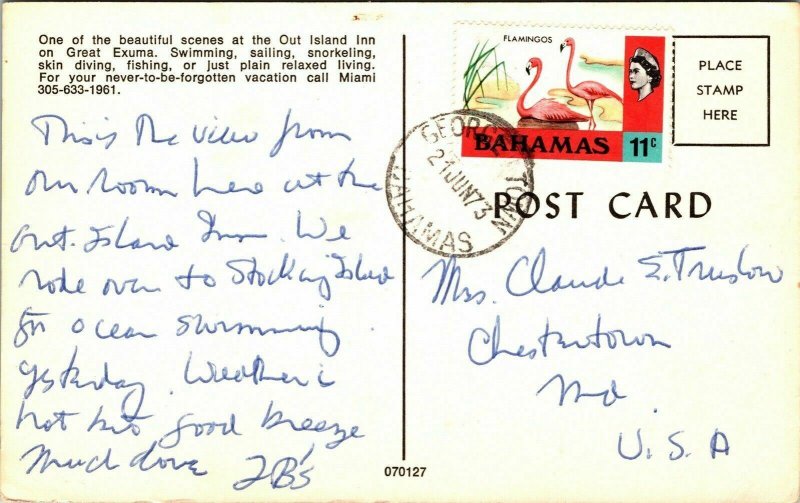 One of the beautiful scenes at the Out Island Inn
on Great Exuma. Swimming, sailing, snorkeling,
skin diving, fishing, or just plain relaxed living.
For your never-to-be-forgotten vacation call Miami
305-633-1961.
This is the view from
our room here at the
Out Island Inn. We
rode over to Stocking Island
for ocean swimming
yesterday. Weather is
hot but good breeze
Much love JB's
070127
FLAMINGOS
BAHAMAS 11c
GEORGE TOWN
21 JUN 73
BAHAMAS
PLACE
STAMP
HERE
POST CARD
Mrs. Claude E. Truslow
Chestertown
Md.
U.S.A